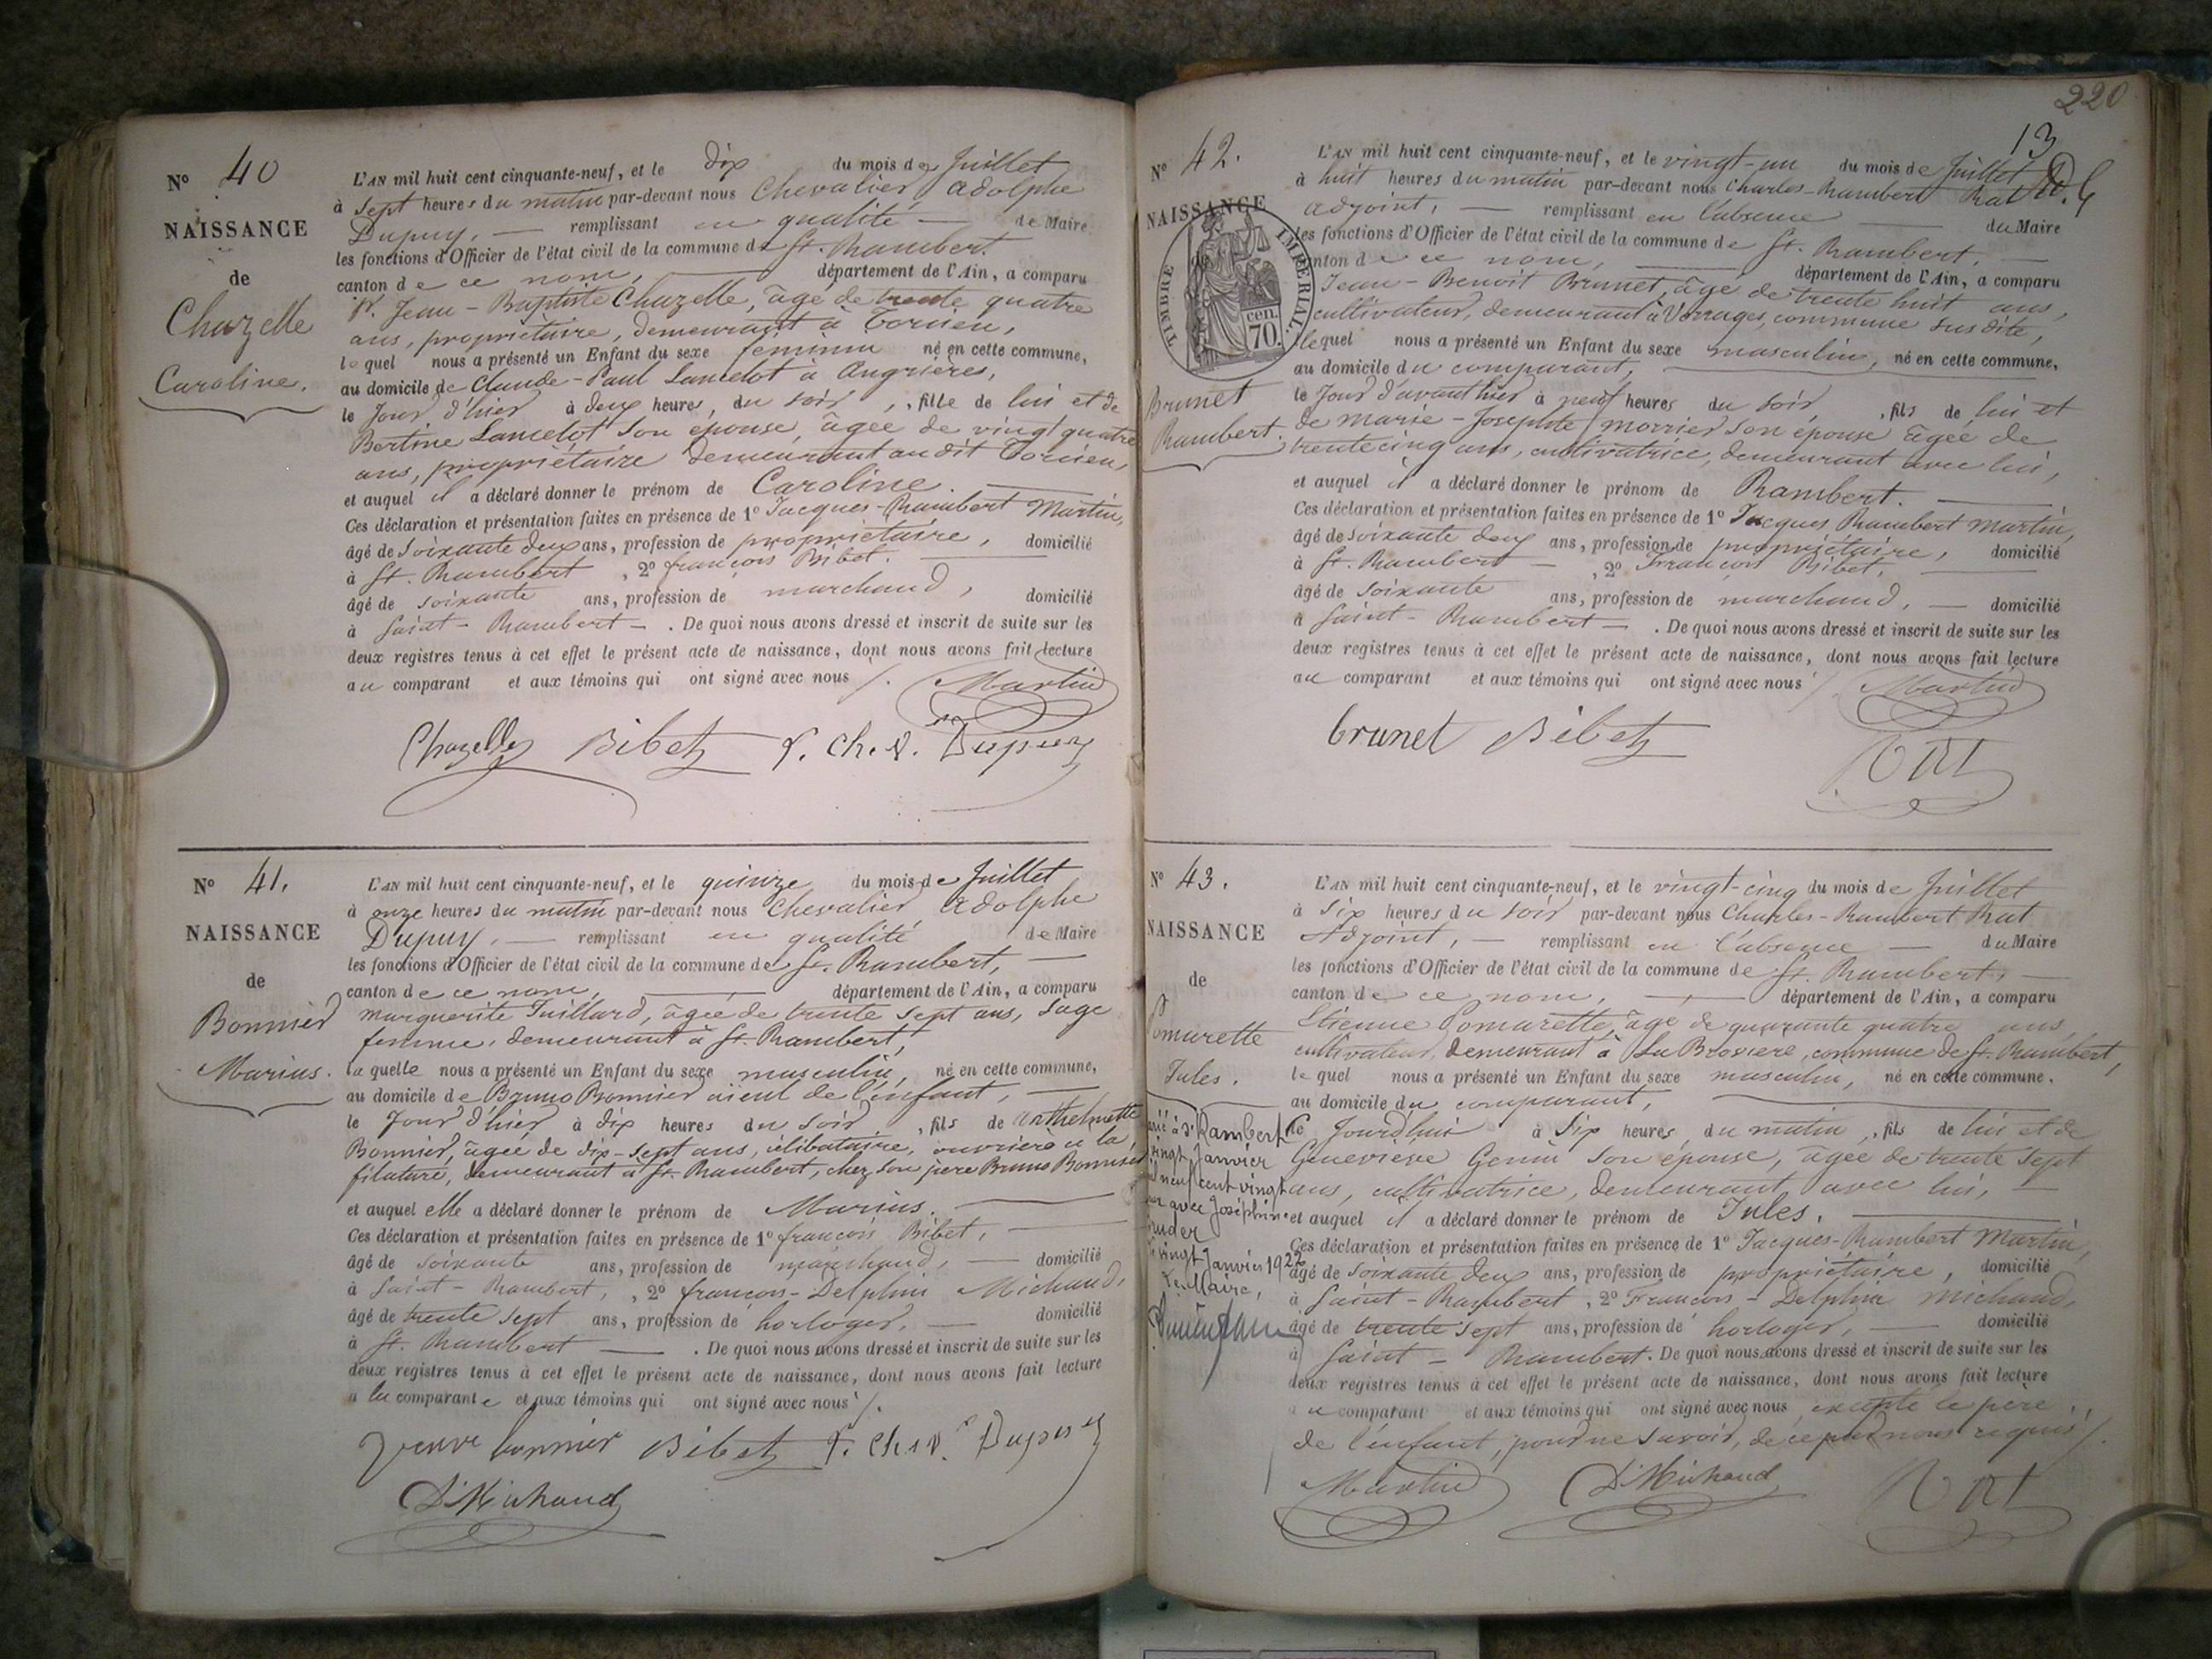 N° 40
NAISSANCE
de
Chazelle
Caroline.
L'AN mil huit cent cinquante-neuf, et le dix du mois de Juillet
à sept heures du matin par-devant nous Chevalier Adolphe
Dupuy, remplissant en qualité de Maire
les fonctions d'Officier de l'état civil de la commune de St. Rambert.
canton de ce nom, département de l'Ain, a comparu
Sr. Jean-Baptiste Chazelle, âgé de trente quatre
ans, propriétaire, demeurant à Torcieu,
lequel nous a présenté un Enfant du sexe féminin né en cette commune,
au domicile de Claude-Paul Lancelot à Angrières,
le Jour d'hier à deux heures, du soir, fille de lui et de
Bertine Lancelot son épouse, âgée de vingt quatre
ans, propriétaire demeurant audit Torcieu,
et auquel il a déclaré donner le prénom de Caroline.
Ces déclaration et présentation faites en présence de 1° Jacques-Rambert Martin,
âgé de soixante deux ans, profession de propriétaire, domicilié
à St. Rambert, 2° françois Bibet.
âgé de soixante ans, profession de marchand, domicilié
à Saint-Rambert. De quoi nous avons dressé et inscrit de suite sur les
deux registres tenus à cet effet le présent acte de naissance, dont nous avons fait lecture
au comparant et aux témoins qui ont signé avec nous
Martin
Chazelle Bibet f. Chev. Dupuy
N° 41.
NAISSANCE
de
Bonnier
Marius.
L'AN mil huit cent cinquante-neuf, et le quinze du mois de Juillet
à onze heures du matin par-devant nous Chevalier Adolphe
Dupuy, remplissant en qualité de Maire
les fonctions d'Officier de l'état civil de la commune de St. Rambert,
canton de ce nom, département de l'Ain, a comparu
Marguerite Juillard, âgée de trente sept ans, sage
femme, demeurant à St. Rambert,
laquelle nous a présenté un Enfant du sexe masculin, né en cette commune,
au domicile de Bruno Bonnier aïeul de l'enfant,
le Jour d'hier à dix heures du soir, fils de Anthelmette
Bonnier, âgée de dix-sept ans, célibataire, ouvrière à la
filature, demeurant à St. Rambert, chez son père Bruno Bonnier
et auquel elle a déclaré donner le prénom de Marius.
Ces déclaration et présentation faites en présence de 1° françois Bibet,
âgé de soixante ans, profession de marchand, domicilié
à Saint-Rambert, 2° françois-Delphin Michaud,
âgé de trente sept ans, profession de horloger, domicilié
à St. Rambert. De quoi nous avons dressé et inscrit de suite sur les
deux registres tenus à cet effet le présent acte de naissance, dont nous avons fait lecture
a la comparante et aux témoins qui ont signé avec nous
veuve bonnier Bibet f. Chev. Dupuy
D. Michaud
220
13
N° 42.
NAISSANCE
TIMBRE IMPERIAL
70 cen.
Brunet
Rambert.
L'AN mil huit cent cinquante-neuf, et le vingt-un du mois de Juillet
à huit heures du matin par-devant nous Charles-Rambert Rat
adjoint, remplissant en l'absence du Maire
les fonctions d'Officier de l'état civil de la commune de St. Rambert,
canton de ce nom, département de l'Ain, a comparu
Jean-Benoit Brunet, âgé de trente huit ans,
cultivateur, demeurant à Vorages, commune susdite,
lequel nous a présenté un Enfant du sexe masculin, né en cette commune,
au domicile du comparant,
le Jour d'avant hier à neuf heures du soir, fils de lui et
de Marie-Josephte Morrier son épouse âgée de
trente cinq ans, cultivatrice, demeurant avec lui,
et auquel il a déclaré donner le prénom de Rambert.
Ces déclaration et présentation faites en présence de 1° Jacques Rambert Martin,
âgé de soixante deux ans, profession de propriétaire, domicilié
à St. Rambert, 2° François Bibet,
âgé de soixante ans, profession de marchand, domicilié
à Saint-Rambert. De quoi nous avons dressé et inscrit de suite sur les
deux registres tenus à cet effet le présent acte de naissance, dont nous avons fait lecture
au comparant et aux témoins qui ont signé avec nous
Martin
brunet Bibet
Rat
N° 43.
NAISSANCE
de
Pomarette
Jules.
L'AN mil huit cent cinquante-neuf, et le vingt-cinq du mois de Juillet
à six heures du soir par-devant nous Charles-Rambert Rat
Adjoint, remplissant en l'absence du Maire
les fonctions d'Officier de l'état civil de la commune de St. Rambert,
canton de ce nom, département de l'Ain, a comparu
Etienne Pomarette, âgé de quarante quatre ans,
cultivateur, demeurant à La Brosière, commune de St. Rambert,
lequel nous a présenté un Enfant du sexe masculin, né en cette commune,
au domicile du comparant,
le Jourd'hui à Six heures du matin, fils de lui et de
Geneviève Genin son épouse, âgée de trente sept
ans, cultivatrice, demeurant avec lui,
et auquel il a déclaré donner le prénom de Jules.
Ces déclaration et présentation faites en présence de 1° Jacques-Rambert Martin,
âgé de soixante deux ans, profession de propriétaire, domicilié
à Saint-Rambert, 2° François-Delphin Michaud,
âgé de trente sept ans, profession de horloger, domicilié
à Saint-Rambert. De quoi nous avons dressé et inscrit de suite sur les
deux registres tenus à cet effet le présent acte de naissance, dont nous avons fait lecture
au comparant et aux témoins qui ont signé avec nous excepté le père
de l'enfant, pour ne savoir, de ce par nous requis
Martin D. Michaud Rat
à St Rambert le
vingt Janvier
neuf cent vingt
avec Joséphine
vingt Janvier 1922
Le Maire,